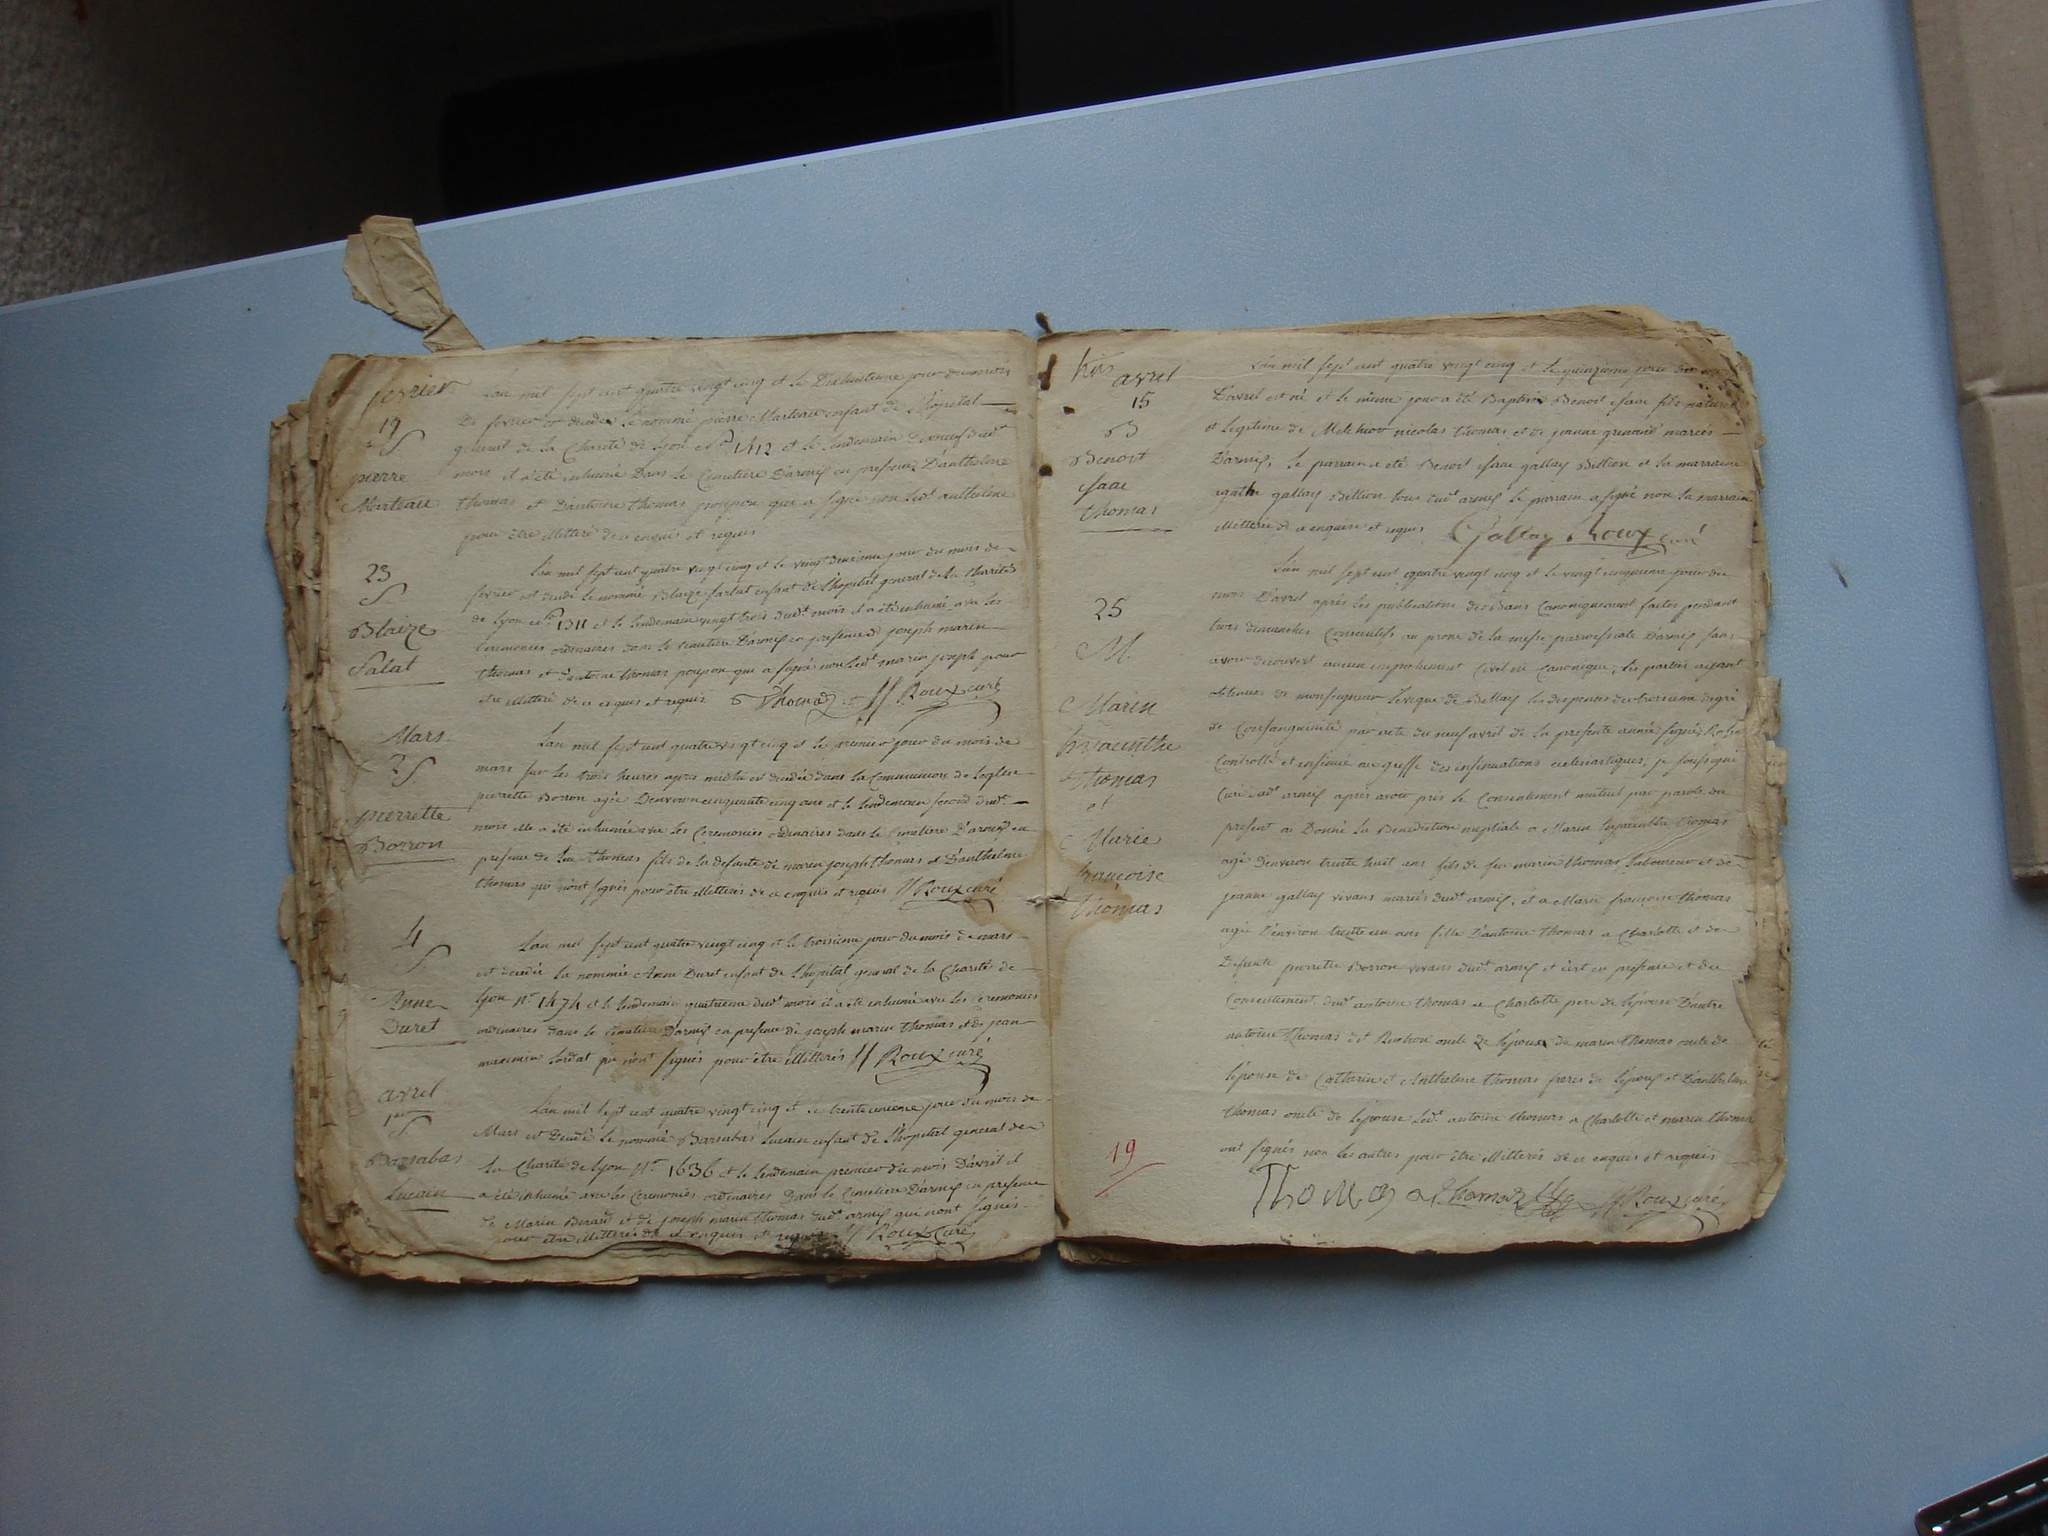 fevrier
19
S
pierre
Marteau
L'an mil sept cent quatre vingt cinq et le Dixhuitieme jour du mois
De fevrier est decedé le nommé pierre Marteau enfant de l'hopital
general de la Charité de Lyon 1412 et le lendemain dixneuf dudt
mois il a été inhumé Dans le Cimetiere D'armis en presence D'anthelme
thomas et D'antoine thomas poupon qui a signé non ledt anthelme
pour être illitteré de ce enquis et requis
23
S
Blaize
Salat
L'an mil sept cent quatre vingt cinq et le vingt deuxieme jour du mois de
fevrier est decedé le nommé Blaize Sarlat enfant de l'hopital general de la charité
de Lyon 1311 et le lendemain vingt trois dudt mois il a été inhumé avec les
Ceremonies ordinaires dans le cimetiere D'armis en presence de joseph marin
thomas et d'antoine thomas poupon qui a signé non ledt marin joseph pour
etre illitteré de ce enquis et requis Thomas Roux curé
Mars
2 S
pierrette
Borron
L'an mil sept cent quatre vingt cinq et le premier jour du mois de
mars sur les trois heures après midi est decedée dans la Communion de l'eglise
pierrette Borron agée D'environ cinquante cinq ans et le lendemain second dudt
mois elle a été inhumée avec les Ceremonies ordinaires dans le Cimetiere D'armis en
presence de thomas fils de la defunte de marin joseph thomas et D'anthelme
thomas qui n'ont signés pour être illitterés de ce enquis et requis Roux curé
4
S
Anne
Duret
L'an mil sept cent quatre vingt cinq et le troisieme jour du mois de mars
est decedée la nommée Anne Duret enfant de l'hopital general de la Charité de
Lyon No 1474 et le lendemain quatrieme dudt mois il a été inhumé avec les ceremonies
ordinaires dans le cimetiere D'armis en presence de joseph marin thomas et de jean
maximin qui n'ont signés pour être illitterés Roux curé
avril
1er S
Barsabas
Lucain
L'an mil sept cent quatre vingt cinq et le trente unieme jour du mois de
Mars est Decedé le nommé Barsabas Lucain enfant de l'hopital general de
la Charité de Lyon No 1636 et le lendemain premier du mois D'avril il
a été inhumé avec les Ceremonies ordinaires Dans le Cimetiere D'armis en presence
de Marin Berard et de joseph marin thomas dudt armis qui n'ont signés
pour etre illitterés de ce enquis et requis Roux Curé
avril
15
B
Benoit
isaac
thomas
L'an mil sept cent quatre vingt cinq et le quinzieme jour du mois
D'avril est né et le même jour a été Baptisé Benoit isaac fils naturel
et legitime de Melchior nicolas thomas et de jeanne mariés
D'armis, le parrain a été Benoit isaac gallay Billion et la marraine
agathe gallay Billion tous dudt armis le parrain a signé non la marraine
illitterée de ce enquise et requis Gallay Roux curé
25
M.
Marin
hyacinthe
thomas
et
Marie
francoise
thomas
L'an mil sept cent quatre vingt cinq et le vingt cinquieme jour du
mois D'avril après les publications des Bans Canoniquement faites pendant
trois dimanches Consecutifs au prone de la messe paroissiale D'armis sans
avoir decouvert aucun empechement Civil ou Canonique; les parties ayant
obtenues de monseigneur l'eveque de Bellay les dispenses du troisieme degré
de Consanguinité par acte du neuf avril de la presente année signé
Controllé et insinué au greffe des insinuations ecclesiastiques, je soussigné
Curé dudt armis après avoir pris le Consentement mutuel par parole du
present ai Donné la Benediction nuptiale a Marin hyacinthe thomas
agé d'environ trente huit ans fils de feu marin thomas laboureur et de
jeanne gallay vivans mariés dudt armis, et a Marie francoise thomas
agée D'environ trente un ans fille D'antoine thomas a Charlotte et de
Defunte pierrette Borron vivans dudt armis et c'est en presence et du
Consentement dudt antoine thomas a Charlotte pere de l'epouse D'autre
antoine thomas dit oncle de l'epoux de marin thomas oncle de
l'epouse de Catharin et Anthelme thomas freres de l'epoux et D'anthelme
thomas oncle de l'epouse ledt antoine thomas a Charlotte et marin thomas
ont signés non les autres pour être illitterés de ce enquis et requis
Thomas a thomas Roux curé
19